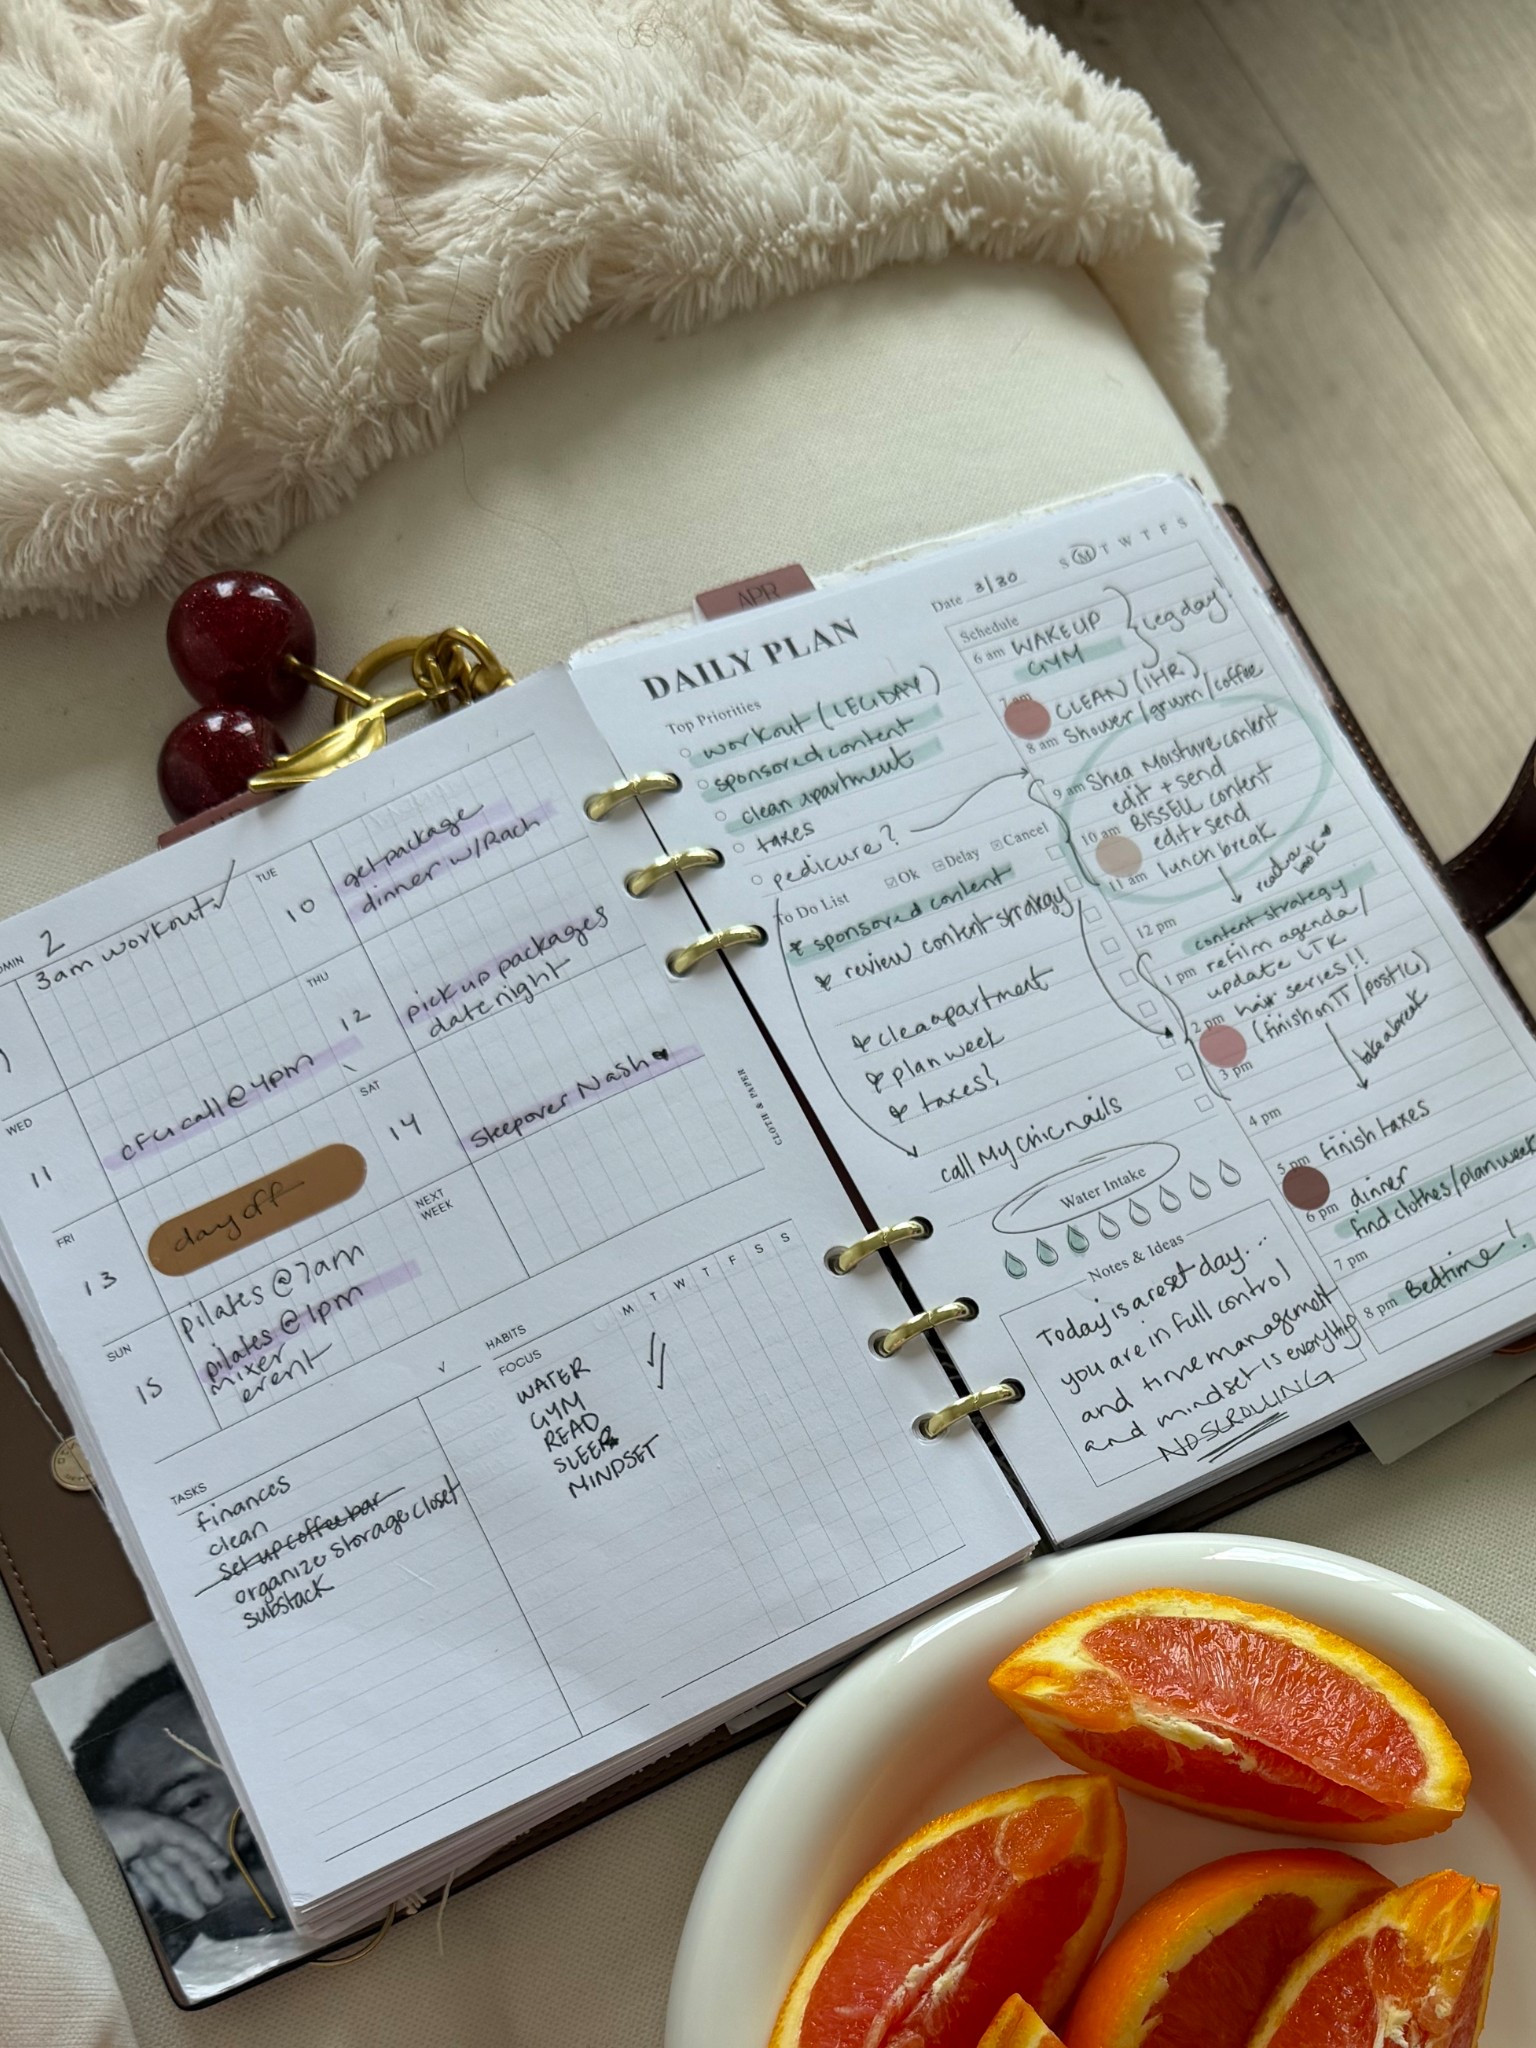 ADMIN
2
3am workout
TUE
10
get package
dinner w/Rach
WED
11
CFG call @ 4pm
THU
12
pick up packages
date night
FRI
13
day off
SAT
14
Sleepover Nash
SUN
15
pilates @ 7am
pilates @ 1pm
mixer
event
NEXT
WEEK
CLOTH & PAPER
TASKS
√
finances
clean
set up coffee bar
organize storage closet
substack
HABITS
M T W T F S S
FOCUS
WATER
GYM
READ
SLEEP
MINDSET
APR
DAILY PLAN
Date 3/30
S M T W T F S
Top Priorities
workout (LEG DAY)
sponsored content
clean apartment
taxes
pedicure?
Ok Delay Cancel
To Do List
sponsored content
review content strategy
clea apartment
plan week
taxes?
call My chic nails
Water Intake
Notes & Ideas
Today is a reset day...
you are in full control
and time management
and mindset is everything
NO SCROLLING
Schedule
6 am WAKE UP
GYM
leg day!
7 am CLEAN (1HR)
Shower/grwm/coffee
8 am
9 am Shea Moisture content
edit + send
BISSELL content
10 am edit + send
lunch break
11 am
read a book
12 pm content strategy
refilm agenda/
1 pm update LTK
hair series!!
2 pm (finish on TT/post IG)
take a break
3 pm
4 pm
finish taxes
5 pm
dinner
6 pm find clothes/plan week
7 pm
Bedtime!
8 pm